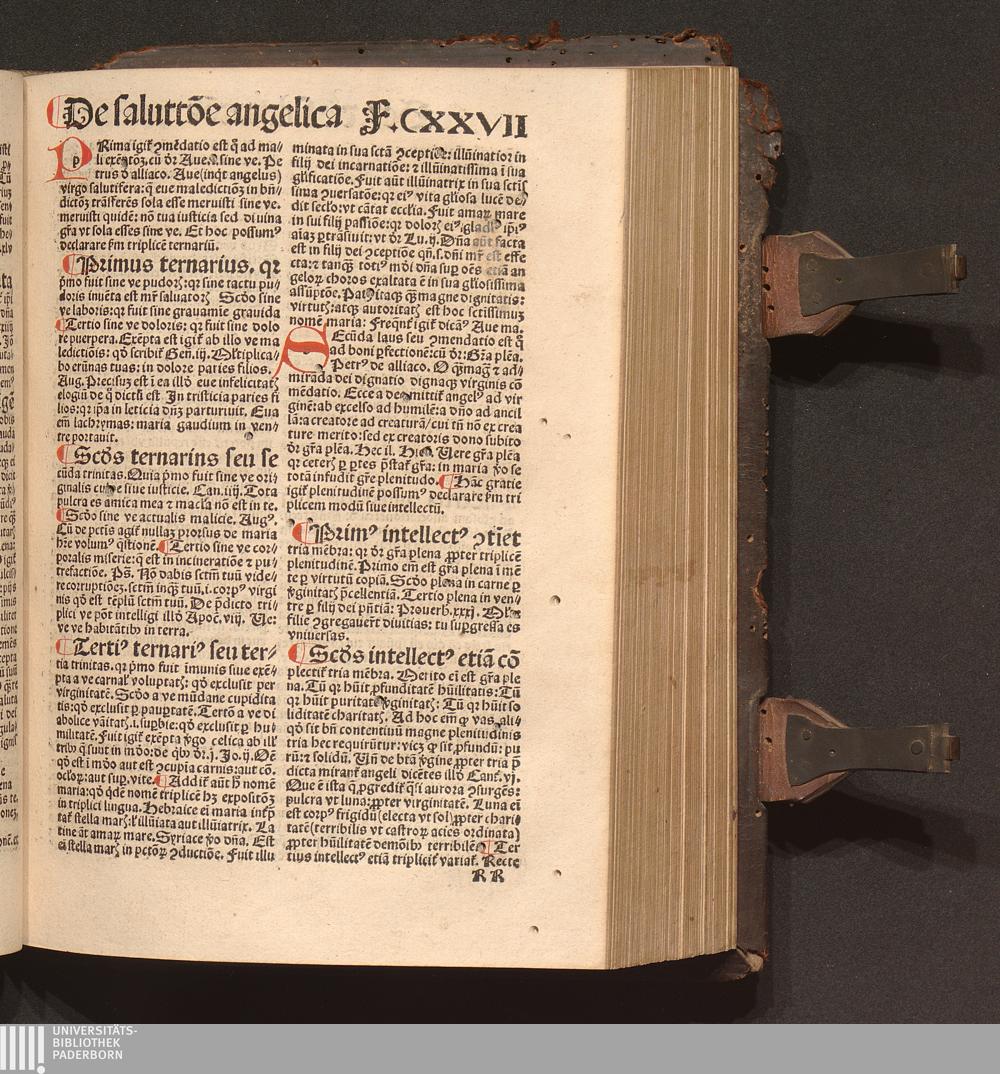 De saluttōe angelica F.CXXVII
PRima igiť ꝯmēdatio est q̄ ad ma/
li exēptōꝫ,cū ōr Aue.i.sine ve. Pe
trus ō alliaco. Aue(inqt angelus)
virgo salutifera:q̄ eue maledictiōꝫ in bñ/
dictōꝫ trāsferēs sola esse meruisti sine ve.
meruisti quidē: nō tua iusticia sed diuina
gr̄a vt sola esses sine ve. Et hoc possumꝰ
declarare ẜm triplicē ternariū.
Primus ternarius. qꝛ
p̄mo fuit sine ve pudorꝫ:qꝛ sine tactu pu/
doris inuēta est mr̄ saluatorꝫ Scōo sine
ve laboris:qꝛ fuit sine grauamīe grauida
Tertio sine ve doloris: qꝛ fuit sine dolo
re puerpera. Exēpta est igiť ab illo ve ma
ledictiōis: qō scribiť Gen̄.iij. Mľtiplica/
bo erūnas tuas: in dolore paries filios.
Aug. Precisuꝫ est ī ea illō eue infelicitatꝫ
elogiū de q̄ dictū est In tristicia paries fi
lios:qꝛ ip̄a in leticia dn̄ꝫ parturiuit. Eua
em̄ lachrymas: maria gaudium in ven/
tre portauit.
Scōs ternarins seu se
cūda trinitas. Quia p̄mo fuit sine ve ori/
ginalis culpe siue iusticie. Can.iiij. Tota
pulcra es amica mea ⁊ macľa nō est in te.
Scōo sine ve actualis malicie. Augꝰ.
Cū de pctīs agiť nullaꝫ prorsus de maria
hr̄e volumꝰ qōstionē. Tertio sine ve cor/
poralis miserie:q̄ est in incineratiōe ⁊ pu/
trefactiōe. Ps̄. Nō dabis sctm̄ tuū vide/
re corruptiōeꝫ.sctm̄ inqꝫ tuū,i.corpꝰ virgi
nis qō est tēplū sctm̄ tuū. De p̄dicto tri/
plici ve pōt intelligi illō Apoč.viij. Ve:
ve ve habitātibꝰ in terra.
Tertiꝰ ternariꝰ seu ter/
tia trinitas.qꝛ p̄mo fuit īmunis siue exē/
pta a ve carnaľ voluptatꝫ: qō exclusit per
virginitatē. Scōo a ve mūdane cupidita
tis:qō exclusit ꝑ paupertatē. Tertō a ve di
abolice vāitatꝫ.i.suꝑbie:qō exclusit ꝑ hu/
militatē. Fuit igiť exēpta ꝟgo celica ab illľ
tribꝰ q̄ sunt in mōo:de qbꝰ ōr.j. Jo.ij. Oē
qō est ī mōo aut est ꝯcupia carnis:aut cō.
ocloꝝ:aut suꝑ.vite. Addiť aūt h̄ nomē
maria:qō qdē nomē triplicē hꝫ expositōꝫ
in triplici lingua. Hebraice ei maria intꝑ̄
tať stella marꝫ:ľ illūiata aut illūiatrix. La
tine āt amaꝝ mare. Syriace ꝟo dn̄a. Est
ei stella marꝫ in pctōꝝ ꝯductiōe. Fuit illu
minata in sua sctā ꝯceptiōe: illūinatioꝛ in
filij dei incarnatiōe: ⁊ illūinatissima ī sua
gľificatiōe. Fuit aūt illūinatrix in sua sctīs
sima ꝯuersatōe:qꝛ eiꝰ vita gľiosa lucē de/
dit secľo:vt cātat eccľia. Fuit amaꝝ mare
in sui filij passiōe:qꝛ dolorꝫ eiꝰ,gladiꝰ ip̄iꝰ
aīaꝫ ꝑtrāsiuit:vt ōr Lu.ij. Dn̄a aūt facta
est in filij dei ꝯceptiōe qn̄.s.dn̄i mr̄ est effe
cta:⁊ tanqꝫ totiꝰ mōi dn̄a suꝑ oēs etiā an
geloꝝ choros exaltata ē in sua gľiosissima
assūptōe. Patꝫ itaqꝫ qꝫ magne dignitatis:
virtutꝫ:atqꝫ autoritatꝫ est hoc sctissimuꝫ
nomē maria: Freqn̄t igiť dicāꝰ Aue ma.
SEcūda laus seu ꝯmendatio est q̄
ad boni ꝑfectionē:cū ōr: Gr̄a plēa.
Petrꝰ de alliaco. O qꝫmagᵃ ⁊ ad/
mirada dei dignatio dignaqꝫ virginis cō
mēdatio. Ecce a deo mittiť angelꝰ ad vir
ginē:ab excelso ad humilē:a dn̄o ad ancil
lā:a creatore ad creaturā/cui tn̄ nō ex crea
ture merito:sed ex creatoris dono subito
ōr gr̄a plēa. Hec il. Hiero. Vere gr̄a plēa
qꝛ ceterꝫ ꝑ ꝑtes p̄staľ gr̄a: in maria ꝟo se
totā infudit gr̄e plenitudo. Hāc gratie
igiť plenitudinē possumꝰ declarare ẜm tri
plicem modū siue intellectū.
Primꝰ intellectꝰ ꝯtīet
tria mēbra: qꝛ ōr gr̄a plena ꝓpter triplicē
plenitudinē. Primo em̄ est gr̄a plena ī mē
te ꝑ virtutū copiā. Scōo plena in carne ꝑ
ꝟginitatꝫ p̄cellentiā. Tertio plena in ven/
tre ꝑ filij dei pn̄tiā: Prouerb.xxxj. Mľte
filie ꝯgregauerr̄t diuitias: tu suꝑgressa es
vniuersas.
Scōs intellectꝰ etiā cō
plectiť tria mēbra. Merito ei est gr̄a ple
na. Tū qꝛ hūit ꝓfunditatē hūilitatis: Tū
qꝛ hūit puritatē ꝟginitatꝫ: Tū qꝛ hūit so
liditatē charitatꝫ. Ad hoc em̄ ꝙ vas ali/
qō sit bn̄ contentiuū magne plenitudinis
tria hec requirūtur: vicꝫ ꝙ sit ꝓfundū: pu
rū: ⁊ solidū. Vn̄ de btā ꝟgine ꝓpter tria p̄
dicta miranť angeli dicētes illō Canť.vj.
Que ē ista q̄ ꝓgrediť qsi aurora ꝯsurgēs:
pulcra vt luna:ꝓpter virginitatē. Luna ei
est corpꝰ frigidū(electa vt sol)ꝓpter chari/
tatē(terribilis vt castroꝝ acies ordinata)
ꝓpter hūilitatē demōibꝰ terribilē. Ter
tius intellectꝰ etiā tripliciť variať. Recte
RR
UNIVERSITÄTS-
BIBLIOTHEK
PADERBORN